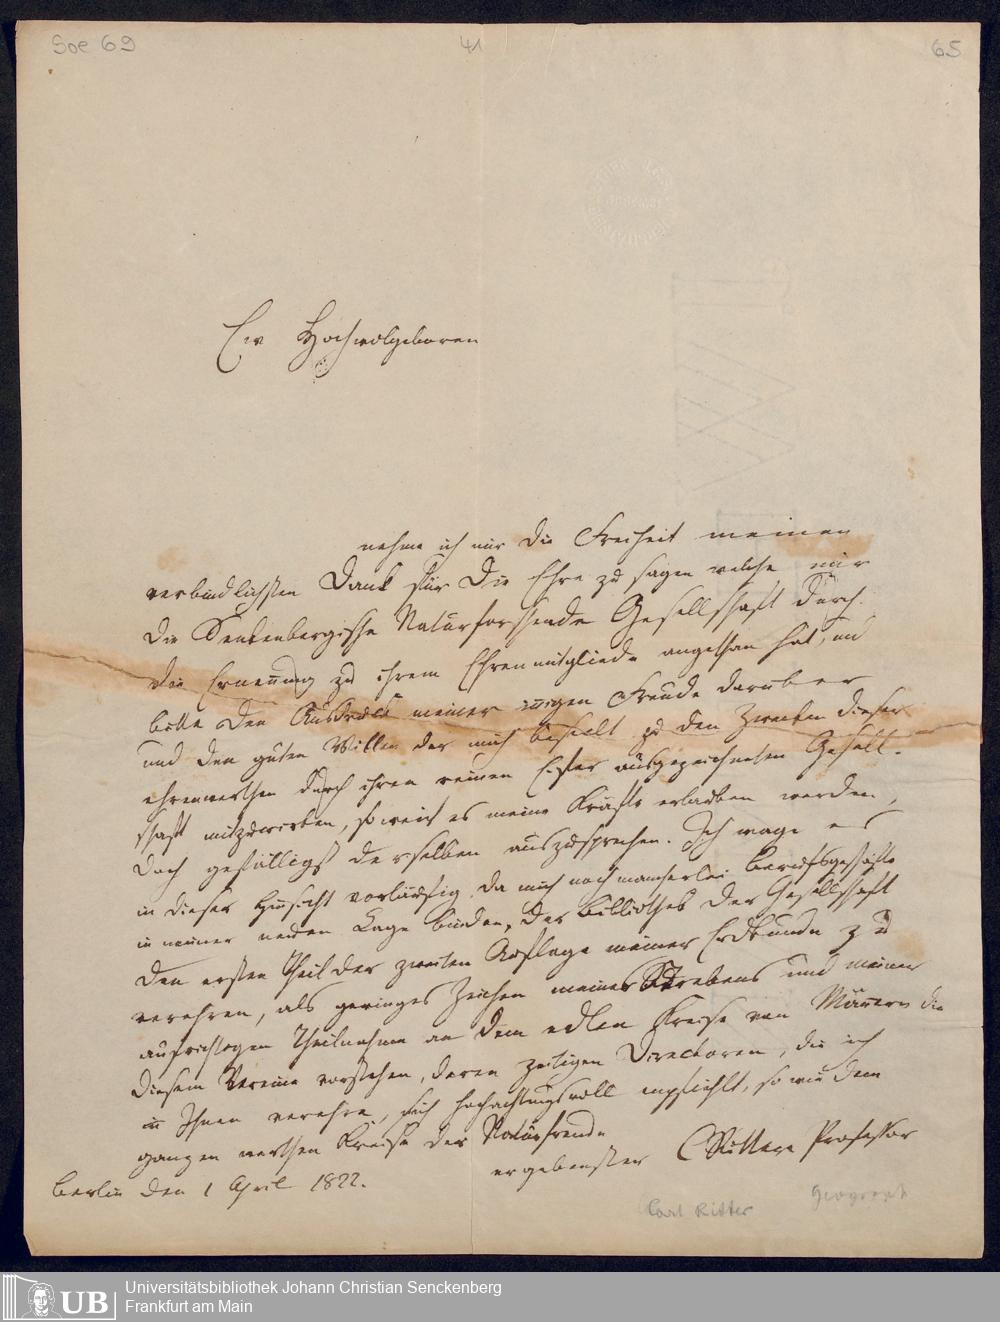 Soe 69
41
65
Ew Hochwolgeboren
nehme ich mir die Freiheit meinen
verbindlichsten Dank für die Ehre zu sagen welche mir
die Senkenbergische Naturforschende Gesellschaft durch
die Ernennung zu ihrem Ehrenmitgliede angethan hat, und
bitte den Ausdruck meiner innigen Freude darüber
und den guten Willen der mich beseelt zu den Zwecken dieser
ehrenwerthen durch ihren reinen Eifer ausgezeichneten Gesell-
schaft mitzuwirken, so weit es meine Kräfte erlauben werden,
doch gefälligst derselben auszusprechen. Ich wage es
in dieser Hinsicht vorläufig, da mich noch mancherlei Berufsgeschäfte
in meiner neuen Lage binden, der Bibliothek der Gesellschaft
den ersten Theil der zweiten Auflage meiner Erdkunde zu
verehren, als geringes Zeichen meines Strebens und meiner
aufrichtigen Theilnahme an dem edlen Kreise von Männern die
diesem Vereine vorstehen, deren zeitigen Directoren, die ich
in Ihnen verehre, sich hochachtungsvoll empfiehlt, so wie dem
ganzen werthen Kreise der Naturfreunde
ergebenster C Ritter Professor
Berlin den 1 April 1822.
Carl Ritter
Geograph
UB
Universitätsbibliothek Johann Christian Senckenberg
Frankfurt am Main